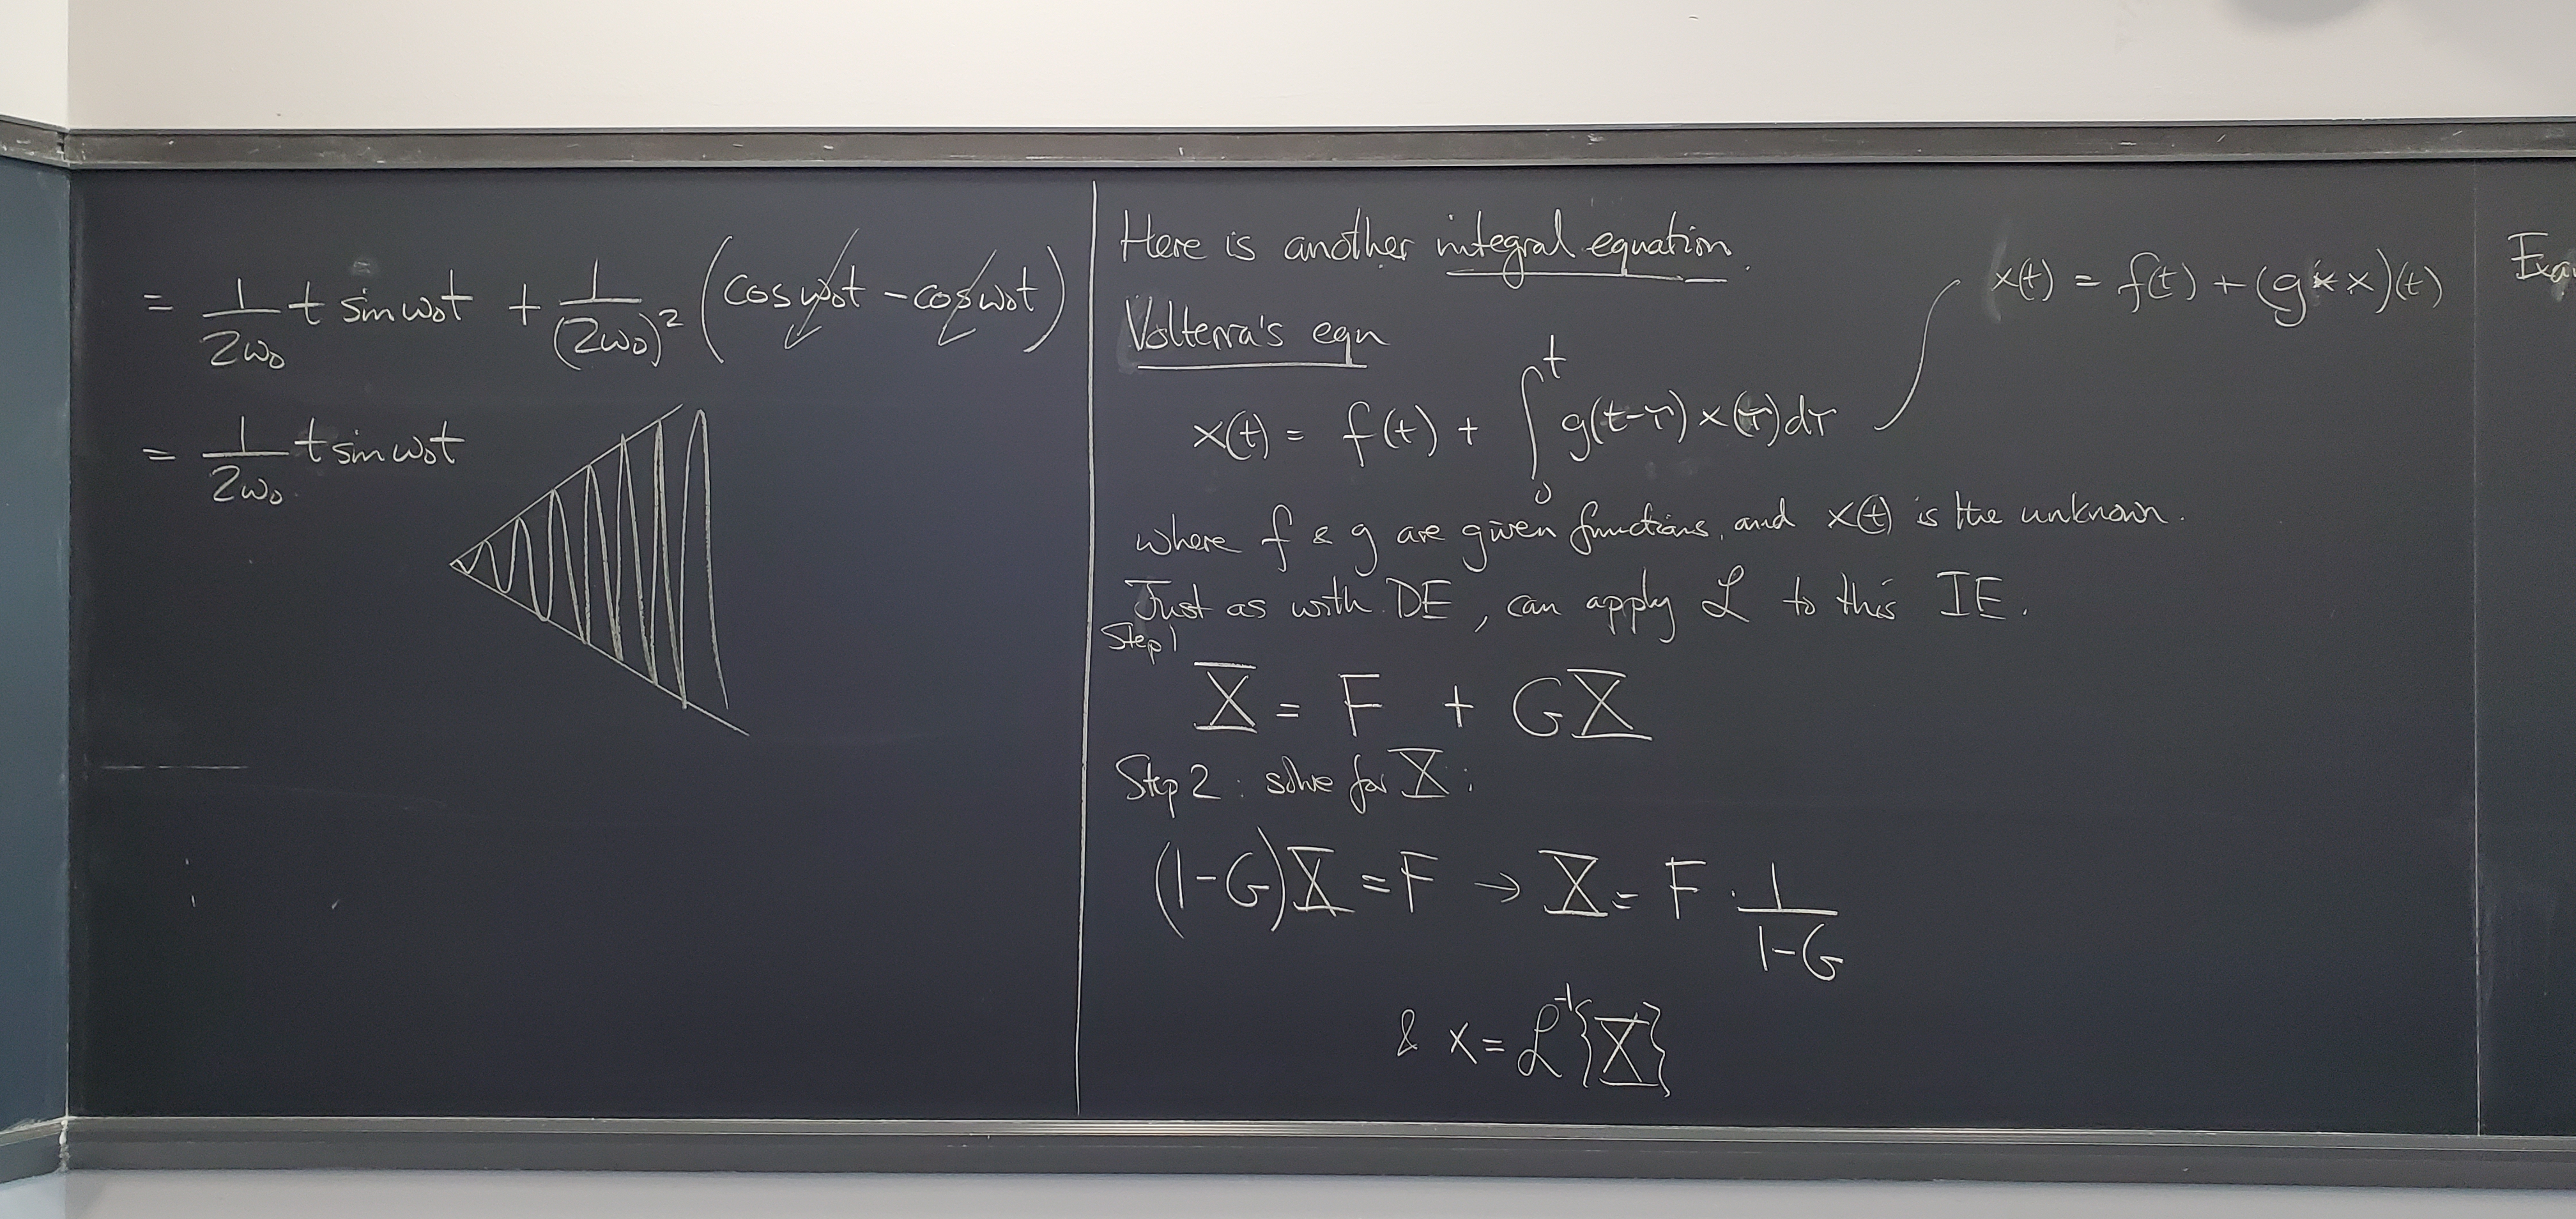 = 1/(2ω₀) t sin ω₀t + 1/(2ω₀)² (cos ω₀t - cos ω₀t)
= 1/(2ω₀) t sin ω₀t
Here is another integral equation.
Volterra's eqn
x(t) = f(t) + ∫₀ᵗ g(t-τ) x(τ) dτ
x(t) = f(t) + (g * x)(t)
where f & g are given functions, and x(t) is the unknown.
Just as with DE, can apply ℒ to this IE.
Step 1
X = F + GX
Step 2: solve for X:
(1-G)X = F → X = F · 1/(1-G)
& x = ℒ⁻¹{X}